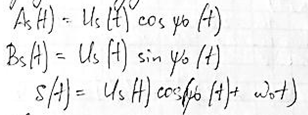 As(t) = Us(t) cos φ0 (t)
Bs(t) = Us(t) sin φ0 (t)
s(t) = Us(t) cos(φ0 (t) + ω0t)